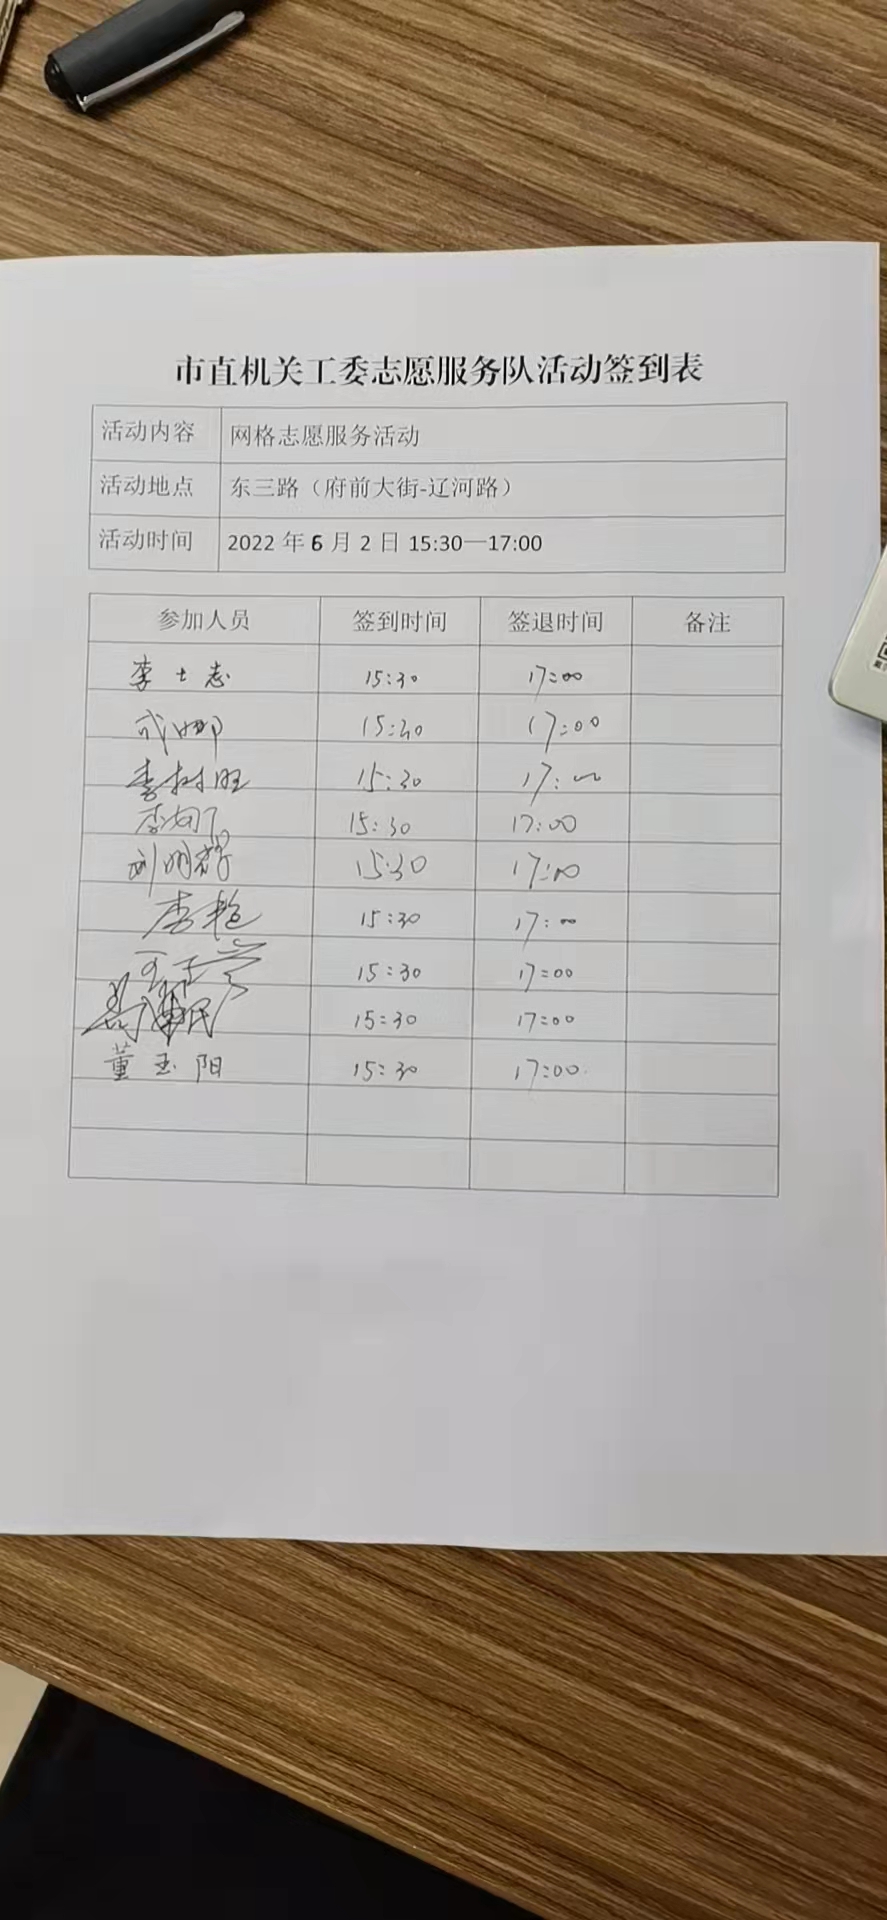 市直机关工委志愿服务队活动签到表
活动内容 网格志愿服务活动
活动地点 东三路（府前大街-辽河路）
活动时间 2022 年 6 月 2 日 15:30—17:00
参加人员 签到时间 签退时间 备注
李士志 15:30 17:00
成娜 15:30 17:00
李树旺 15:30 17:00
李 15:30 17:00
刘明 15:30 17:00
李艳 15:30 17:00
15:30 17:00
15:30 17:00
董玉阳 15:30 17:00